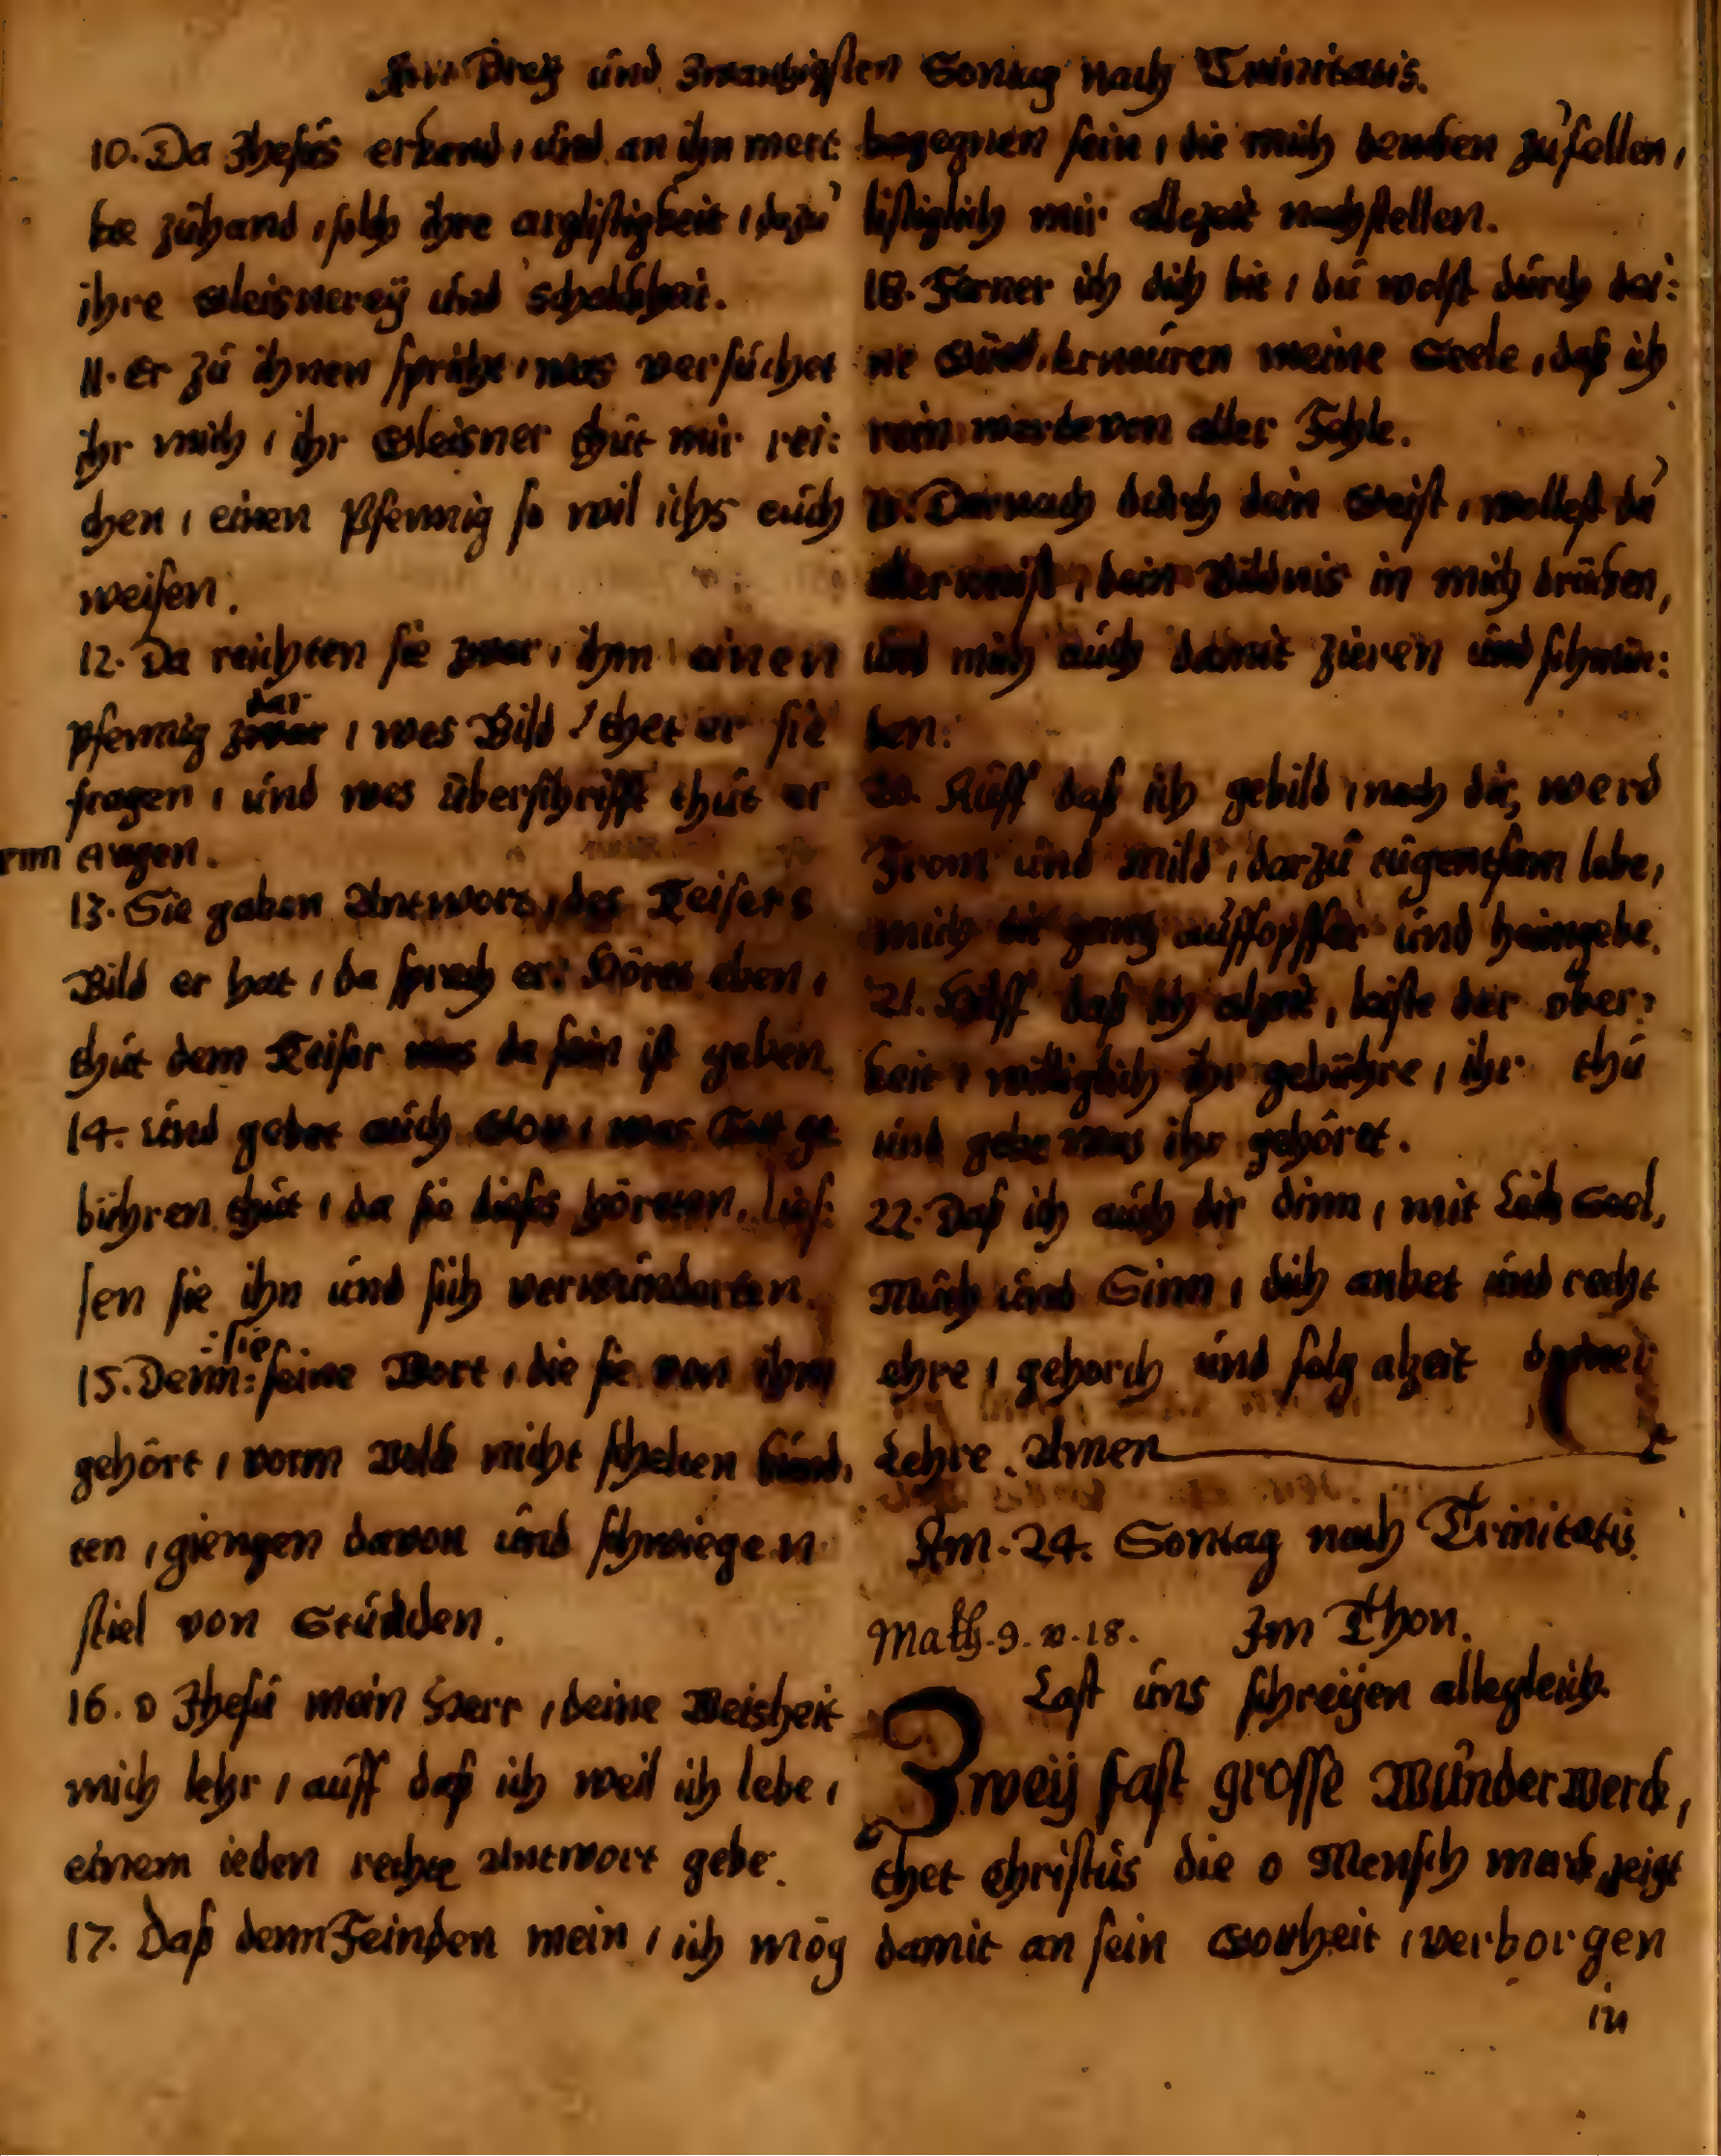 Am Dreÿ und zwantzigsten Sontag nach Trinitatis.
10. Da Jhesus erkand, und an ihn merc
ke zuhand, solch ihre arglistigkeit, dazu
ihre Gleisnereÿ und schalckheit.
11. Er zu ihnen spricht, was versuchet
ihr mich, ihr Gleisner thut mir rei:
chen, einen Pfennig so wil ichs euch
weisen.
12. Da reichten sie zwar, ihm einen
dar
pfennig zwar, wes Bild, thet er sie
fragen, und wes überschrifft thut er
rm augen.
13. Sie gaben Antwort, des Keisers
Bild er hat, da sprach er: Höret eben,
thut dem Keiser was da sein ist geben.
14. und gebet auch Gott, was Gott ge
bühren thut, da sie dieses höreten, lies:
sen sie ihn und sich verwunderten.
:sie
15. Denn: seine Wort, die sie von ihm
gehört, vorm Volck nicht schelten kund,
ten, giengen davon und schwiegen
stiel von Stunden.
16. O Jhesu mein Herr, deine Weisheit
mich lehr, auff daß ich weil ich lebe,
einem ieden rechte Antwort gebe.
17. Daß denn Feinden mein, ich mög
begegnen fein, die mich dencken zufellen,
listiglich mir allezeit nachstellen.
18. Ferner ich dich bit, du wolst durch dei:
ne Güt, Erneuren meine Seele, daß ich
rein werde von aller Fehle.
19. Darnach durch dein Geist, wollest du
allermeist, dein Bildnis in mich drücken,
und mich auch damit zieren und schmü:
ken:
20. Auff daß ich gebild, nach dir, werd
From und mild, darzu tugentsam lebe,
mich dir gantz auffopffer und heimgebe.
21. Hilff daß ich alzeit, leiste der ober:
keit, williglich ihr gebühre, ihr thu
und gebe was ihr gehöret.
22. Daß ich auch dir dinn, mit Leib Seel,
Muth und Sinn, dich anbet und recht
ehre, gehorch und folg alzeit deiner
Lehre. Amen
Am. 24. Sontag nach Trinitatis.
Math. 9. v. 18. Im Thon.
Last uns schreÿen allegleich.
Zweÿ fast grosse Wunderwerck,
thet Christus die o Mensch merck, zeigt
damit an sein Gottheit, verborgen
in